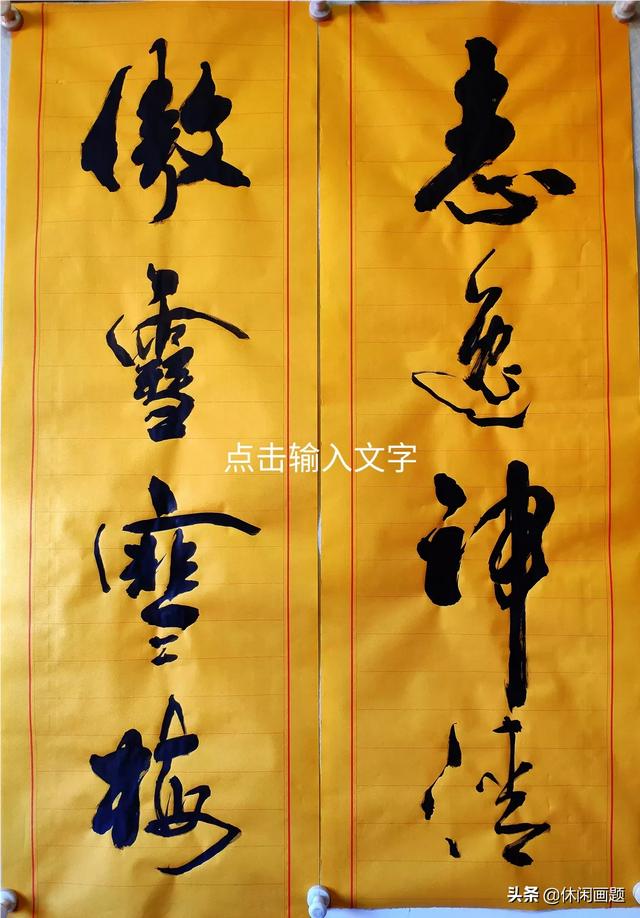 志逸神清
傲雪寒梅
点击输入文字
头条 @休闲画题